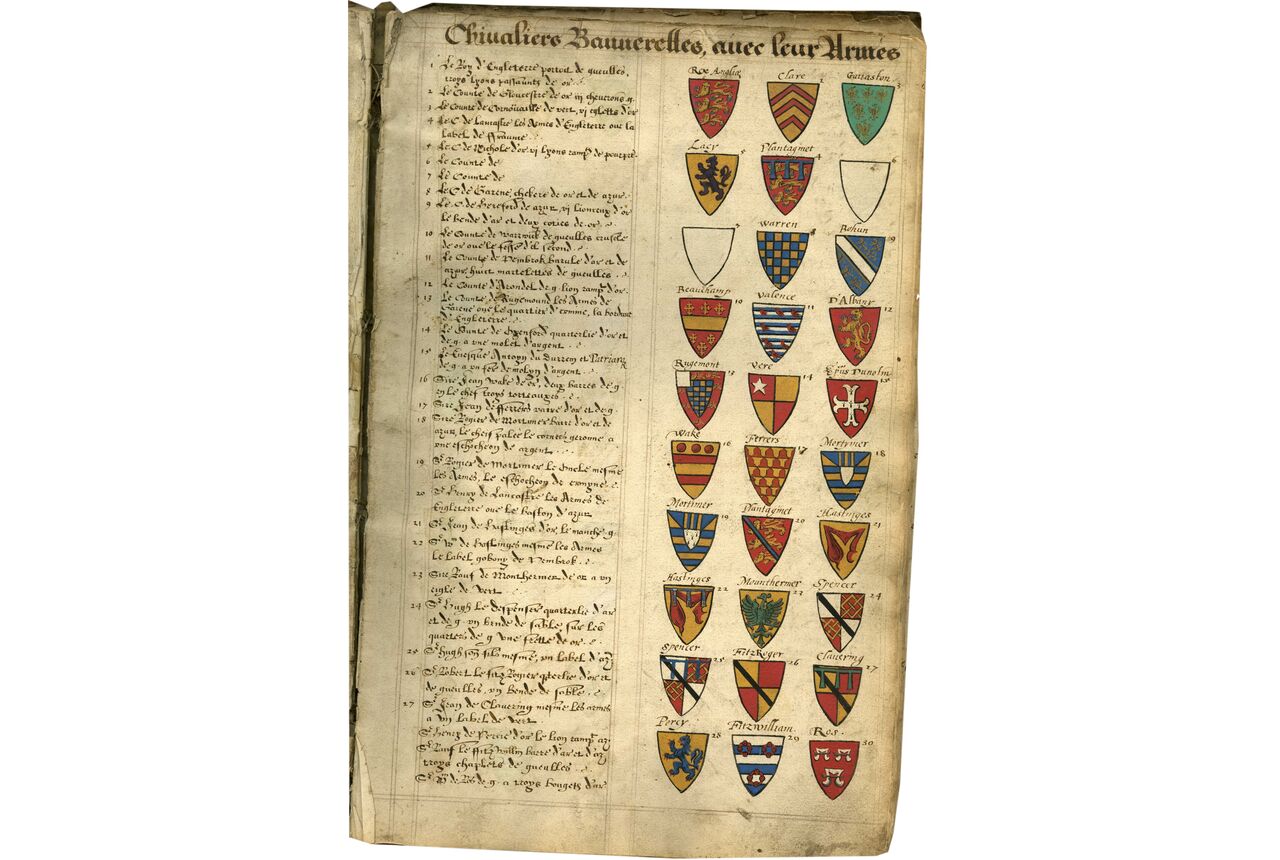 Chiualiers Bannerettes, auec leur Armes
1 Le Roy d'Engleterre portoit de gueulles,
troys lyons passauntz de or
2 Le Counte de Gloucestre de or iij cheuerons g.
3 Le Counte de Cornouaille de vert, vj egletts d'or
4 Le C. de Lancastre les Armes d'Engleterre oue la
label de ffraunce
5 Le C. de Nichole d'or vj lyons ramp. de pourpre
6 Le Counte de
7 Le Counte de
8 Le C. de Garene, chekere de or et de azur
9 Le C. de Hereford de azur, vj lionceux d'or
le bende d'ar et deux cotices de or
10 Le Counte de Warwick de gueulles crusele
de or oue le fesse d'il second
11 Le Counte de Pembrok barule d'ar et de
azur, huict martelettes de gueulles
12 Le Counte d'Arondel de g. lion ramp. d'or
13 Le Counte de Rugemound les Armes de
Garene oue le quartier d'ermine, la bordure
d'Engleterre
14 Le Counte de Oxenford quarterlie d'or et
de g. a vne molet d'argent
15 Le Euesque Antoyn du Durrem et Patriarq
de g. a vn fer de molyn d'argent
16 Sire Jean Wake de or, deux barres de g.
en le chef troys torteauxes
17 Sire Jean de fferrers vaire d'or et de g.
18 Sire Rogier de Mortimer barre d'or et de
azur, le cheif palee le corners geronne a
vne eschocheon de argent
19 Sr. Rogier de Mortimer le Oncle mesme
les Armes, le eschocheon de ermyne
20 Sr. Henry de Lancastre les Armes de
Engleterre oue le baston d'azur
21 Sr. Jean de Hastinges d'or, le manche g.
22 Sr. Wm. de Hastinges mesme les Armes
le label gobony de Pembrok
23 Sire Rauf de Monthermer de or a vn
eigle de vert
24 Sr. Hugh le despenser quarterlie d'ar
et de g. vn bende de sable, sur les
quarters de g. vne frette de or
25 Sr. Hugh son fils mesme, vn label d'az
26 Sr. Robert le fitz Rogier qterlie d'or et
de gueulles, vn bende de sable
27 Sr. Jean de Clavering mesme les armes
a vn label de vert
Sr. Henry de Percie d'or le lion ramp. az
Sr. Rauf le ffitz Willm barre d'ar et d'az
troys chapletts de gueulles
Sr. Wm. de Ros de g. a troys bougets d'ar
Rex Angliæ
Clare 2
Gauaston 3
Lacy 5
Plantagnet 4
6
7
Warren 8
Bohun 9
Beauchamp 10
Valence 11
D'Albany 12
Rugemont 13
Vere 14
Epūs Dunolm 15
Wake 16
Ferrers 17
Mortymer 18
Mortimer 19
Plantagnet 20
Hastinges 21
Hastinges 22
Mounthermer 23
Spencer 24
Spencer 25
FitzRoger 26
Clavering 27
Percy 28
Fitzwilliam 29
Ros 30